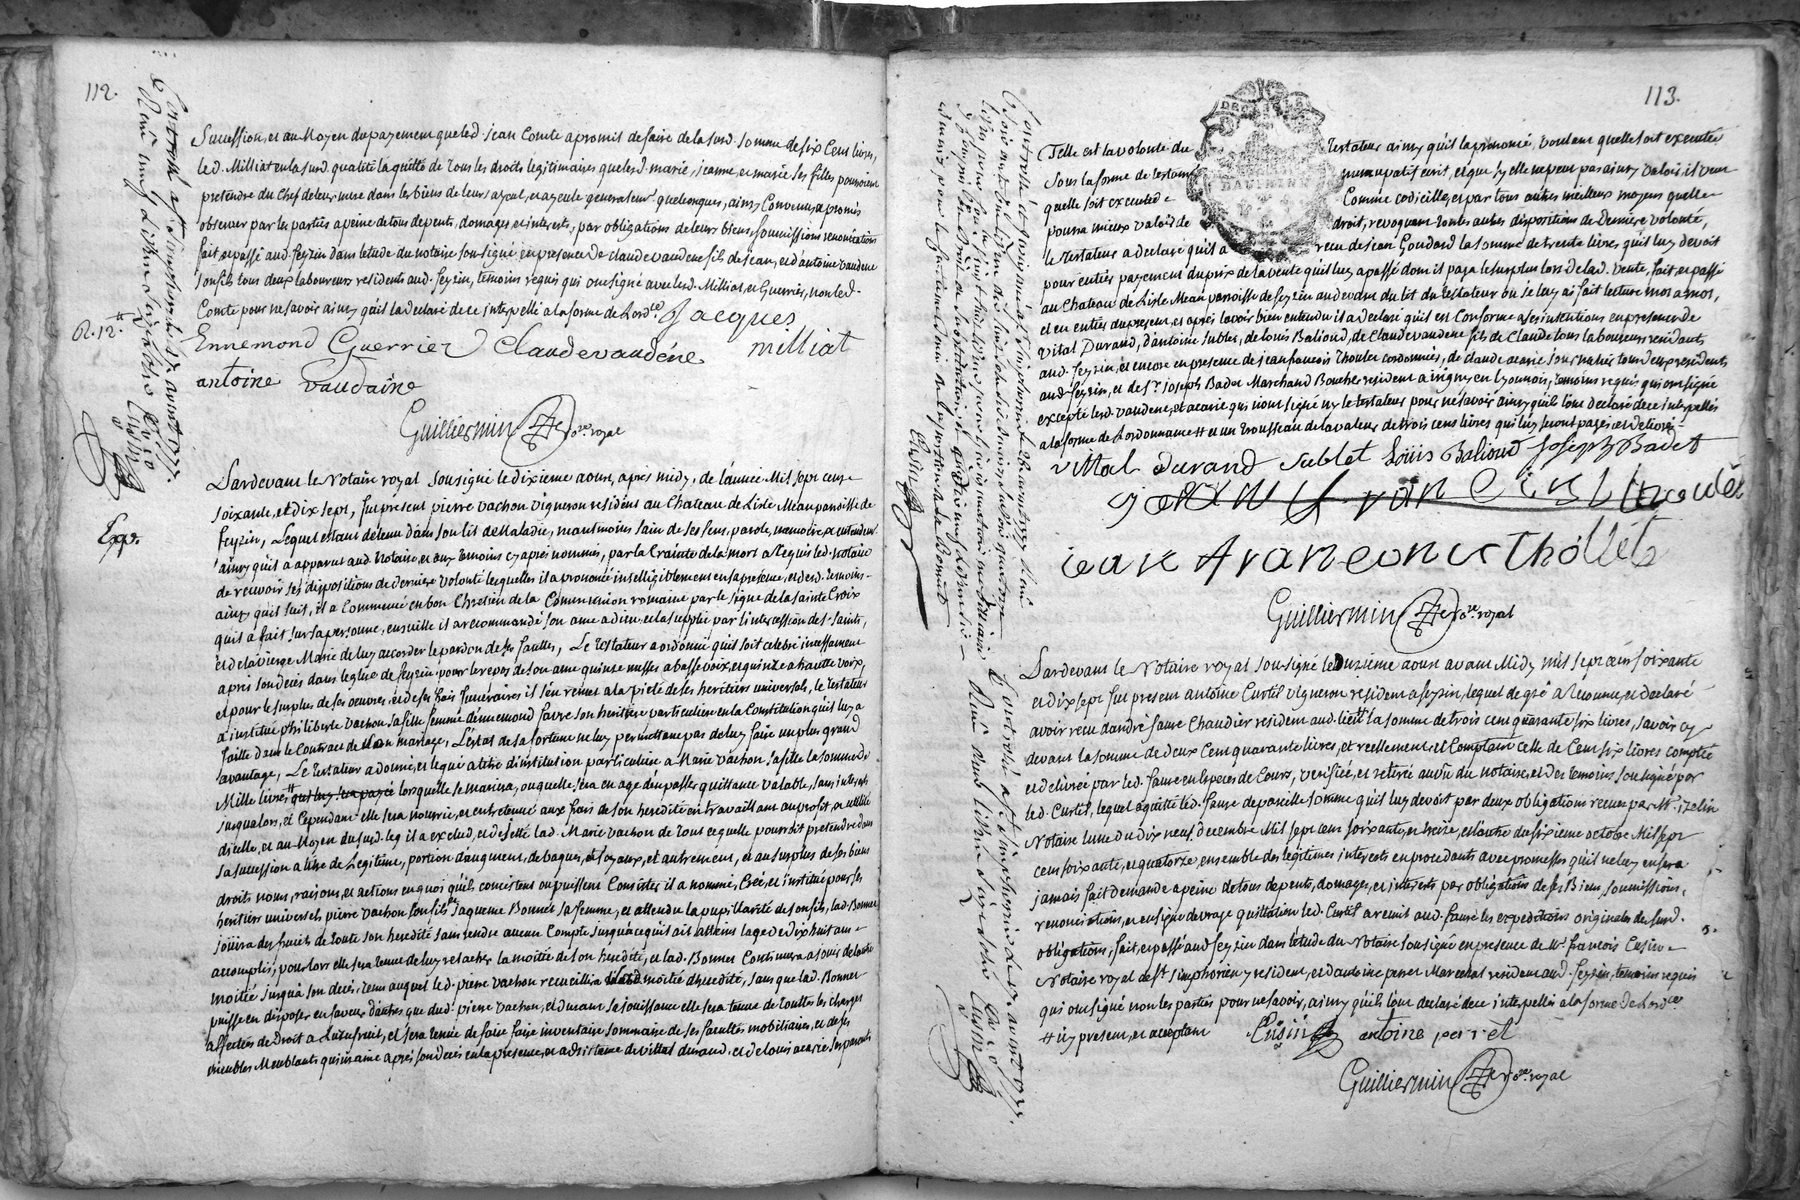 112.
Succession, et au Moyen du payement que led. jean Comte a promis de faire de la susd. somme de six Cent livres,
led. Milliat en la susd. qualité la quitte de tous les droits legitimaires que lesd. marie, jeanne, et marie ses filles pourroient
pretendre du Chef de leur mere dans les biens de leurs ayeul, et ayeule generalement quelconques, ainsy Convenu, et promis
observer par les parties a peine de tous depents, domages, et interests, par obligations de leurs biens, soumissions renonciations
fait, et passé aud. feyzin dans letude du notaire soussigné en presence de claude vaudene fils de jean, et d'antoine vaudene
son fils tous deux laboureurs residents aud. feyzin, temoins requis qui ont signé avec led. Milliat, et Guerrier, non led.
Comte pour ne savoir ainsy qu'il la declaré de ce interpellé a la forme de Lord.ce Jacques
R. 12.tt
Ennemond Guerrier Claudevaudéne milliat
antoine vaudaine
Guilliermin no.re royal
Pardevant le Notaire royal soussigné le dixieme aoust, apres midy, de l'année Mil sept cent
soixante, et dix sept, fut present pierre vachon vigneron resident au Chateau de Lisle Mean paroisse de
Exp.
feyzin, Lequel estant détenu dans son lit de Maladie, neantmoins sain de ses sens, parole, memoire, et entendement
ainsy qu'il a apparut aud. Notaire, et aux temoins cy apres nommés, par la Crainte de la mort a Requis led. notaire
de recevoir ses dispositions de derniere volonté lesquelles il a prononcé intelligiblement en sa presence, et desd. temoins
ainsy quil suit, il a Commencé en bon Chretien de la Communion romaine par le signe de la sainte Croix
quil a fait sur sa personne, ensuitte il a recommandé son ame a dieu, et la supplié par l'intercession des saints,
et de la vierge Marie de luy accorder le pardon de ses fautes, Le testateur a ordonné quil soit celebré incessament
apres son decés dans leglise de feyzin pour le repos de son ame quinze messes a basse voix, et quinze a hautte voix,
et pour le surplus de ses oeuvres, et de ses frais funeraires il s'en remet a la pieté de ses heritiers universels, le testateur
a institué philiberte vachon sa fille femme d'ennemond faure son heritiere particuliere en la Constitution qu'il luy a
faitte dans le Contract de mariage, L'estat de sa fortune ne luy permettant pas de luy faire un plus grand
avantage, Le testateur a donné, et legué a titre d'institution particuliere a Marie vachon sa fille la somme de
Mille livres lorsquelle se mariera, ou quelle sera en age d'en passer quittance valable, sans interests
jusqualors, et Cependant elle sera nourrie, et entretenuë aux frais de son heredité en travaillant au profit, et utilité
dicelle, et au Moyen dusd. leg il a exclud, et dejetté lad. Marie vachon de tout ce quelle pourroit pretendre dans
sa succession a titre de Legitime, portion d'augment, de bagues, et joyaux, et autrement, et au surplus de ses biens
droits noms, raisons, et actions en quoi qu'ils consistent ou puissent Consister il a nommé, Créé, et institué pour ses
heritiers universels pierre vachon son fils et jaquema Bonnet sa femme, et attendu la pupillarité de son fils, lad. Bonnet
jouira des fruits de toute son heredité sans rendre aucun Compte jusqua ce quil ait atteint lage de dix huit ans
accomplis, pour lors elle sera tenuë de luy relacher la moitié de son heredité, et lad. Bonnet Continuera a jouir de lautre
moitié jusqua son decés, tems auquel led. pierre vachon recueillira lad. moitié d'heredité, sans que lad. Bonnet
puisse en disposer en faveur d'autres que dud. pierre vachon, et durant sa jouissance elle sera tenuë de touttes les charges
affectées de Droit a Lusufruit, et sera tenuë de faire faire inventaire sommaire de ses facultés mobiliaires, et de ses
meubles Meublants quinzaine apres son decés en la presence, et adsistance de vittal durand, et de louis acarie ses parents
113.
Telle est la volonté du testateur ainsy qu'il la prononcé, voulant quelle soit executée
sous la forme de testament nuncupatif ecrit, et que sy elle ne peut pas ainsy valoir, il veut
quelle soit executée Comme codicille, et par tous autres meilleurs moyens quelle
pourra mieux valoir de droit, revoquant toutes autres dispositions de derniere volonté,
le testateur a declaré qu'il a recu de jean Goudard la somme de trente livres qu'il luy devoit
pour entier payement du prix de la vente qu'il luy a passé dont il paya le surplus lors de lad. vente, fait, et passé
au Chateau de Lisle Mean paroisse de feyzin au devant du lit du testateur où je luy ai fait lecture mot a mot,
et en entier du present, et apres lavoir bien entendu il a declaré quil est Conforme a ses intentions en presence de
vital Durand, d'antoine Sublet, de louis Baliond, de Claude vaudene fils de Claude tous laboureurs residants
aud. feyzin, et encore en presence de jean francois Thollet cordonnier, de claude acarie journalier tous deux residents
aud. feyzin, et de S.r Joseph Badet Marchand Boucher resident a irigny en lyonnois, temoins requis qui ont signé
excepté lesd. vaudene, et acarie qui n'ont signé ny le testateur pour ne savoir ainsy quils l'ont declaré de ce interpellés
a la forme de Lordonnance # et un trousseau de la valeur de trois cent livres qui luy seront payés
vittal durand sublet Loüis Baliond joseph Badet
jean franconeus thollet
Guilliermin no.re royal
Pardevant le Notaire royal soussigné le onzieme aoust avant Midy mil sept cent soixante
et dix sept fut present antoine Curtil vigneron resident a feyzin, lequel de gré a Reconnu, et declaré
avoir recu d'andré faure Chaudier resident aud. lieu la somme de trois cent quarante six livres, savoir cy
devant la somme de deux Cent quarante livres, et reellement, et Comptant celle de Cent six livres comptée
et delivrée par led. faure en especes de Cours, verifiée, et retirée au vû du notaire, et des temoins soussigné par
led. Curtil, lequel a quitté led. faure de pareille somme qu'il luy devoit par deux obligations recues par M.e
Notaire lune du dix neuf decembre Mil sept cent soixante, et treize, et lautre du sixieme octobre Mil sept
cent soixante, et quatorze, ensemble des legitimes interests en procedants avec promesses qu'il ne luy en sera
jamais fait demande a peine de tous depents, domages, et interests par obligations de ses Biens, soumissions,
renonciations, et en signe de vraye quittation led. Curtil a remit aud. faure les expeditions originales desusd.
obligations, fait, et passé aud. feyzin dans l'etude du Notaire soussigné en presence de M.e francois Cusin
Notaire royal de S.t simphorien y resident, et d'antoine perret Marechal resident aud. feyzin, temoins requis
qui ont signé non les parties pour ne savoir, ainsy quils l'ont declaré de ce interpellés a la forme de Lord.ce
# icy present, et acceptant Cusin antoine perret
Guilliermin no.re royal